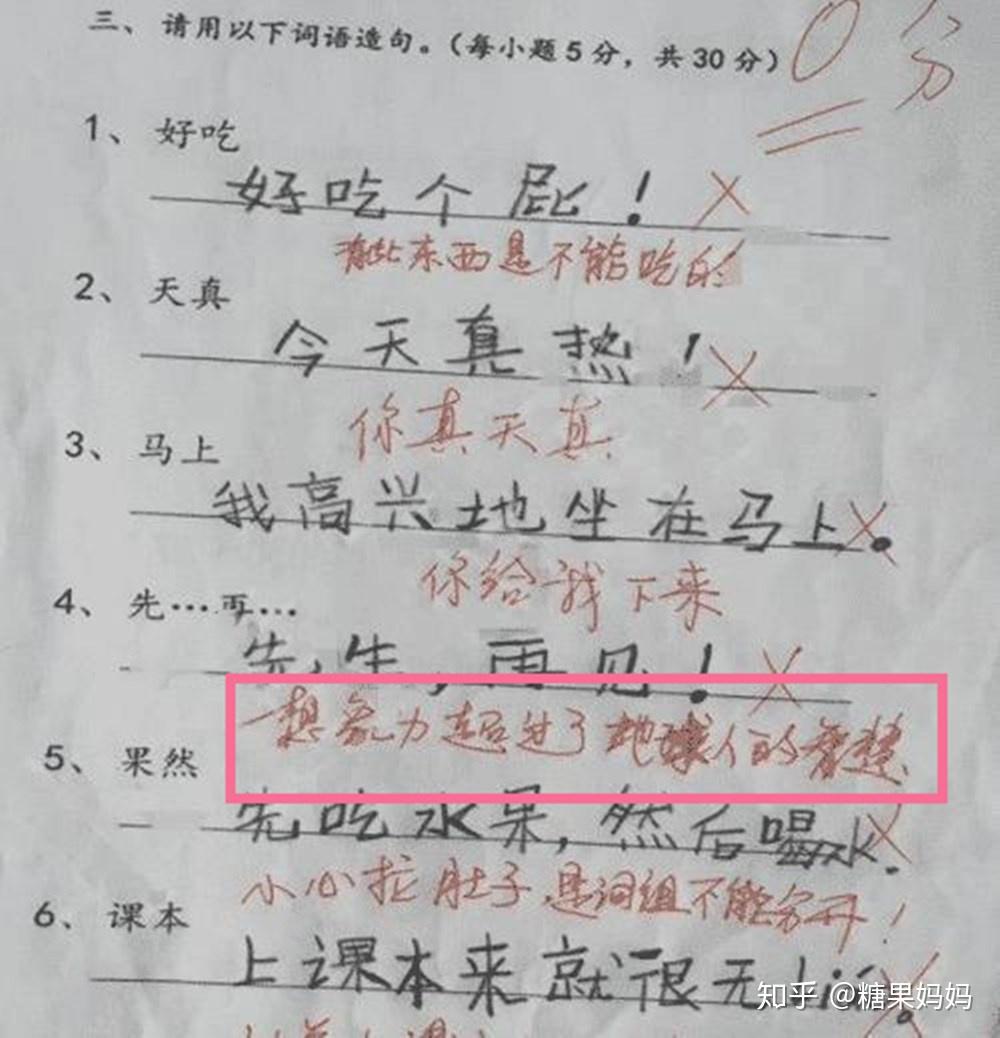 三、请用以下词语造句。(每小题5分，共30分)
0分
1、好吃
好吃个屁！
有些东西是不能吃的
2、天真
今天真热！
你真天真
3、马上
我高兴地坐在马上。
你给我下来
4、先…再…
先生，再见！
想象力超过了地球人的智慧
5、果然
先吃水果，然后喝水.
小心拉肚子，是词组不能分开！
6、课本
上课本来就很无
知乎 @糖果妈妈